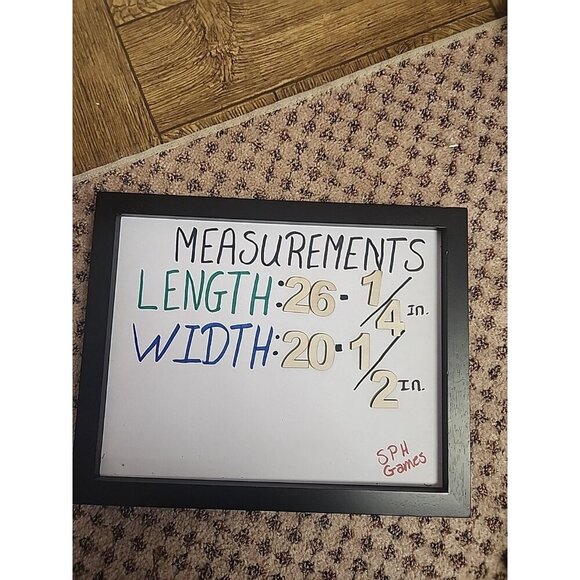 MEASUREMENTS
LENGTH: 26-1/4 IN.
WIDTH: 20-1/2 IN.
SPH
Games